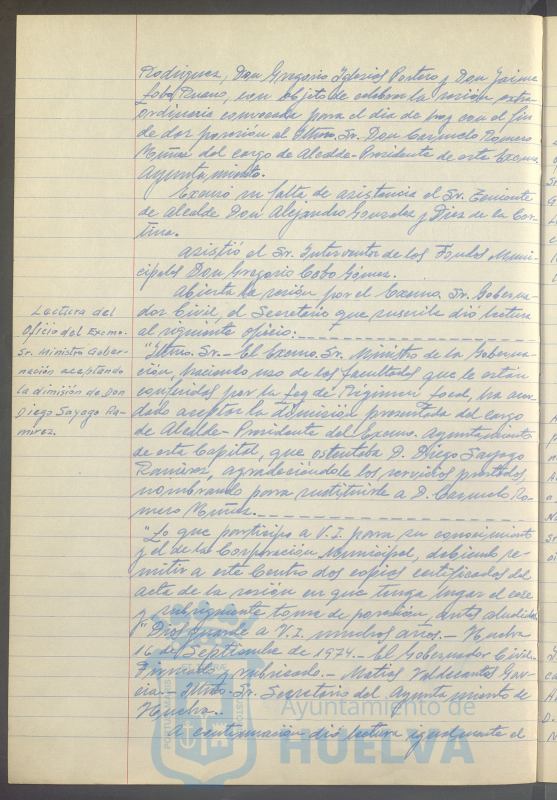 Rodriguez, Don Gregorio Iglesias Portero y Don Jaime
Lobo Ruano, con objeto de celebrar la sesión extra-
ordinaria convocada para el día de hoy con el fin
de dar posesión al Iltmo. Sr. Don Carmelo Romero
Núñez del cargo de Alcalde-Presidente de este Excmo.
Ayuntamiento.
Excusó su falta de asistencia el Sr. Teniente
de Alcalde Don Alejandro Gonzalez y Diez de la Cor-
tina.
Asistió el Sr. Interventor de los Fondos Muni-
cipales Don Gregorio Cobo Gómez.
Abierta la sesión por el Excmo. Sr. Goberna-
dor Civil, el Secretario que suscribe dió lectura
al siguiente oficio:
Lectura del
Oficio del Excmo.
Sr. Ministro Gober-
nación aceptando
la dimisión de Don
Diego Sayago Ra-
mirez.
"Iltmo. Sr.- El Excmo. Sr. Ministro de la Goberna-
ción, haciendo uso de las facultades que le están
conferidas por la Ley de Régimen Local, ha acor-
dado aceptar la dimisión presentada del cargo
de Alcalde-Presidente del Excmo. Ayuntamiento
de esta Capital, que ostentaba D. Diego Sayago
Ramirez, agradeciéndole los servicios prestados
nombrando para sustituirle a D. Carmelo Ro-
mero Núñez.
"Lo que participo a V.I. para su conocimiento
y el de la Corporación Municipal, debiendo re-
mitir a este Centro dos copias certificadas del
acta de la sesión en que tenga lugar el cese
y subsiguiente toma de posesión, antes aludidos.
"Dios guarde a V.I. muchos años.- Huelva
16 de Septiembre de 1974.- El Gobernador Civil.-
Firmado y rubricado.- Matias Valdecantos Gar-
cia.- Iltmo. Sr. Secretario del Ayuntamiento de
Huelva.-
A continuación dió lectura igualmente el
Ayuntamiento de
HUELVA